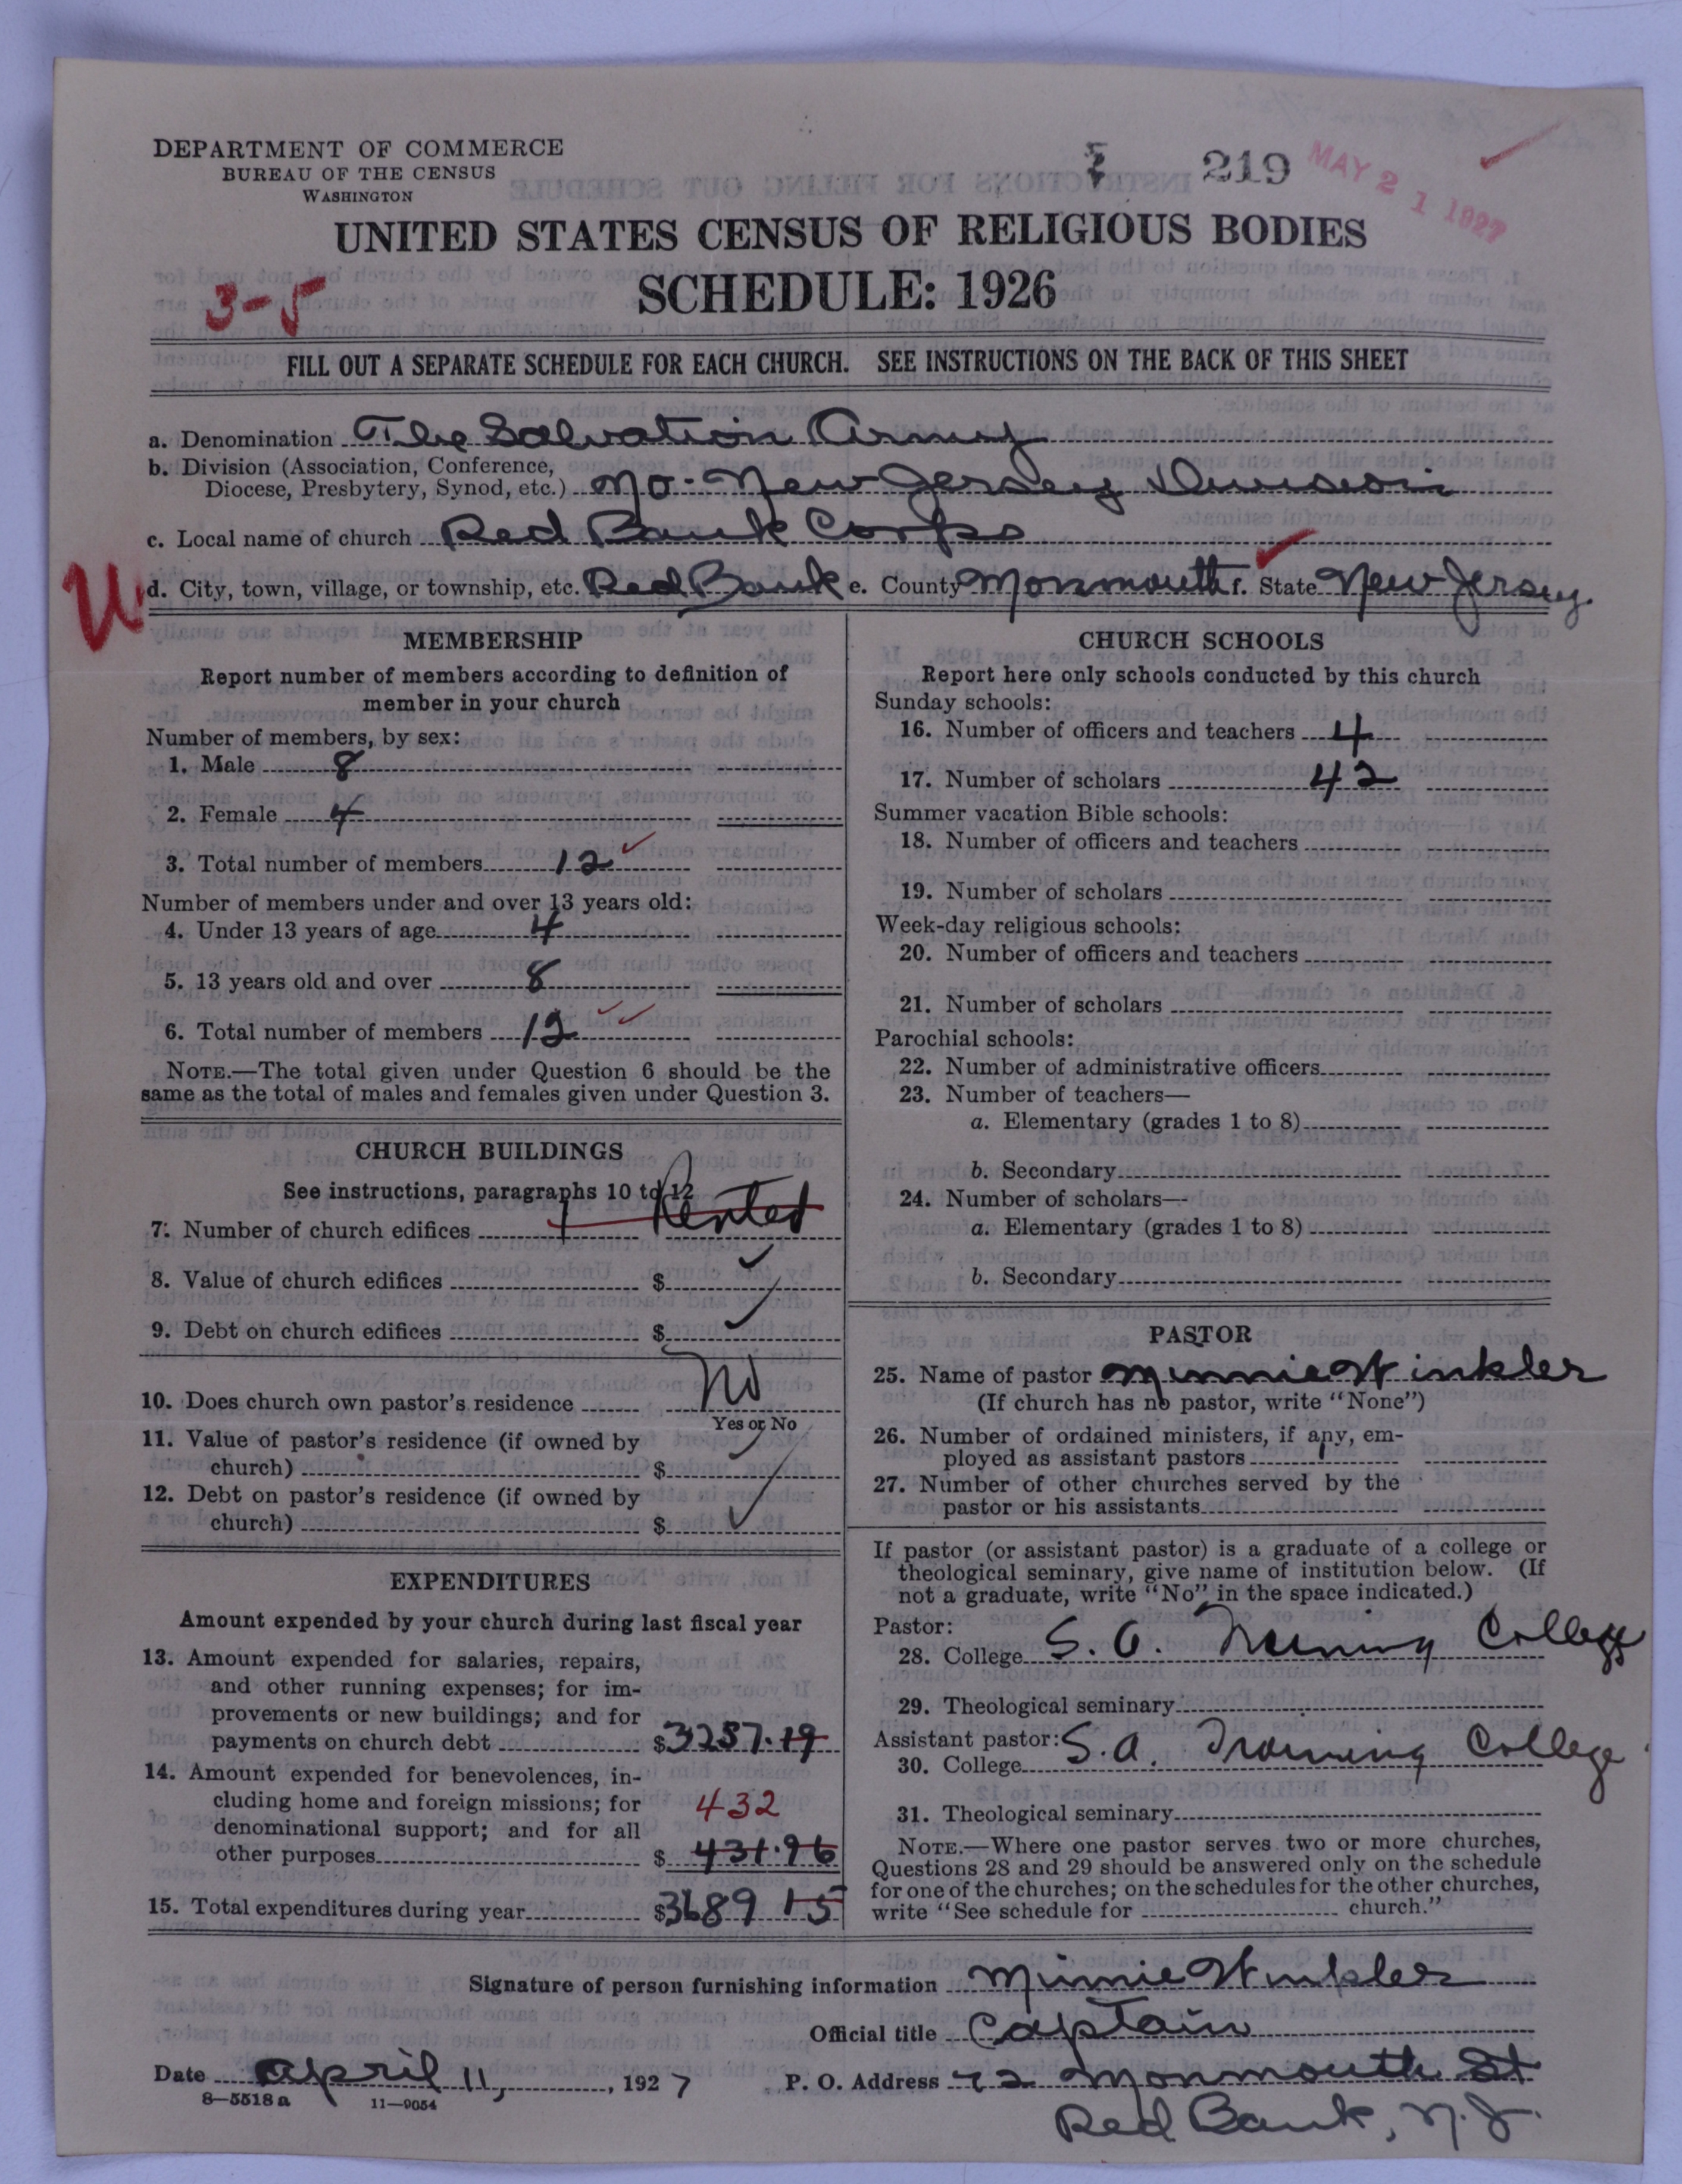 DEPARTMENT OF COMMERCE
BUREAU OF THE CENSUS
WASHINGTON
219
MAY 21 1927
UNITED STATES CENSUS OF RELIGIOUS BODIES
SCHEDULE: 1926
3-5
FILL OUT A SEPARATE SCHEDULE FOR EACH CHURCH. SEE INSTRUCTIONS ON THE BACK OF THIS SHEET
a. Denomination The Salvation Army
b. Division (Association, Conference,
Diocese, Presbytery, Synod, etc.) No. New Jersey Division
c. Local name of church Red Bank Corps
U d. City, town, village, or township, etc. Red Bank e. County Monmouth f. State New Jersey.
MEMBERSHIP
Report number of members according to definition of
member in your church
Number of members, by sex:
1. Male 8
2. Female 4
3. Total number of members 12
Number of members under and over 13 years old:
4. Under 13 years of age 4
5. 13 years old and over 8
6. Total number of members 12
NOTE.—The total given under Question 6 should be the
same as the total of males and females given under Question 3.
CHURCH BUILDINGS
See instructions, paragraphs 10 to 12
7. Number of church edifices 1 Rented
8. Value of church edifices $
9. Debt on church edifices $
10. Does church own pastor's residence No
Yes or No
11. Value of pastor's residence (if owned by
church) $
12. Debt on pastor's residence (if owned by
church) $
EXPENDITURES
Amount expended by your church during last fiscal year
13. Amount expended for salaries, repairs,
and other running expenses; for im-
provements or new buildings; and for
payments on church debt $3257.19
14. Amount expended for benevolences, in-
cluding home and foreign missions; for 432
denominational support; and for all
other purposes $ 431.96
15. Total expenditures during year $3689 15
CHURCH SCHOOLS
Report here only schools conducted by this church
Sunday schools:
16. Number of officers and teachers 4
17. Number of scholars 42
Summer vacation Bible schools:
18. Number of officers and teachers
19. Number of scholars
Week-day religious schools:
20. Number of officers and teachers
21. Number of scholars
Parochial schools:
22. Number of administrative officers
23. Number of teachers—
a. Elementary (grades 1 to 8)
b. Secondary
24. Number of scholars—
a. Elementary (grades 1 to 8)
b. Secondary
PASTOR
25. Name of pastor Minnie Winkler
(If church has no pastor, write "None")
26. Number of ordained ministers, if any, em-
ployed as assistant pastors 1
27. Number of other churches served by the
pastor or his assistants
If pastor (or assistant pastor) is a graduate of a college or
theological seminary, give name of institution below. (If
not a graduate, write "No" in the space indicated.)
Pastor:
28. College S. A. Training College
29. Theological seminary
Assistant pastor:
30. College S.A. Training College
31. Theological seminary
NOTE.—Where one pastor serves two or more churches,
Questions 28 and 29 should be answered only on the schedule
for one of the churches; on the schedules for the other churches,
write "See schedule for church."
Signature of person furnishing information Minnie Winkler
Official title Captain
Date April 11, , 1927 P. O. Address 72 Monmouth St
8—5518a 11—9054
Red Bank, N.J.